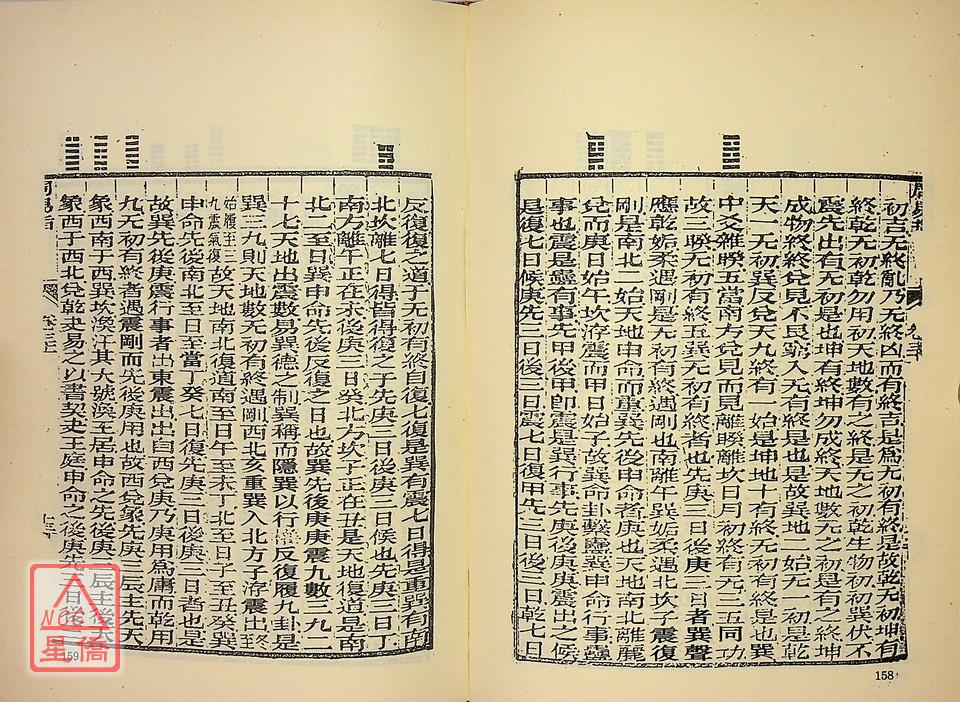 初吉无終亂乃无終凶而有終吉是爲无初有終是故乾无初坤有
終乾无初乾勿用初天地數有之終是无之初乾生物初巽伏不
震先出有无初是也坤有終坤勿成終天地數无之初是有之終坤
成物終終兌見不艮窮入无有終是也是故巽地二始无一初是乾
天一无初巽反兌天九終有一始是坤地十有終无初有終是也巽
中爻離睽五當南方兌見而見離睽離坎日月初終有无三五同功
故二睽无初有終五巽无初有終者也先庚三日後庚三日者巽聲
應乾姤柔遇剛是无初有終遇剛也南離午巽姤柔遇北坎子震復
剛是南北二始天地申命而重巽先後申命者庚也天地南北離麗
兌而庚日始午坎洊震而甲日始子故巽命卦繫蠱巽申命行事蠱
事也震是蠱有事先甲後甲卽震是巽行事先庚後庚庚震出之候
是復七日候庚先三日後三日震七日復甲先三日後三日乾七日
158
反復復之道于无初有終自復七復是巽有震七日得是重巽有南
北坎離七日得皆得復之子先庚三日後庚三日候也先庚三日丁
南方離午正在未後庚三日癸北方坎子正在丑是天地復道是南
北二至日巽申命先後反復之日也故巽先後庚庚震九數三九二
十七天地出震數易巽德之制巽稱而隱巽以行權反復履九卦是
巽三九則天地數无初有終遇剛西北亥重巽入北方子洊震出終
始履至三
九震氣復
故天地南北復道南至日午至未丁北至日子至丑癸巽
申命先後南北至日至當丁癸七日復先庚三日後庚三日者也是
故巽先後庚震行事者出東震出出自西兌庚乃庚用爲庸而乾用
九无初有終者遇震剛而先後庚用也故西兌象先庚三辰主先天
象西南于西巽坎渙汗其大號渙王居申命之先後庚三辰主後天
象西于西北兌乾夬易之以書契夬王庭申命之後庚先三日後三
159